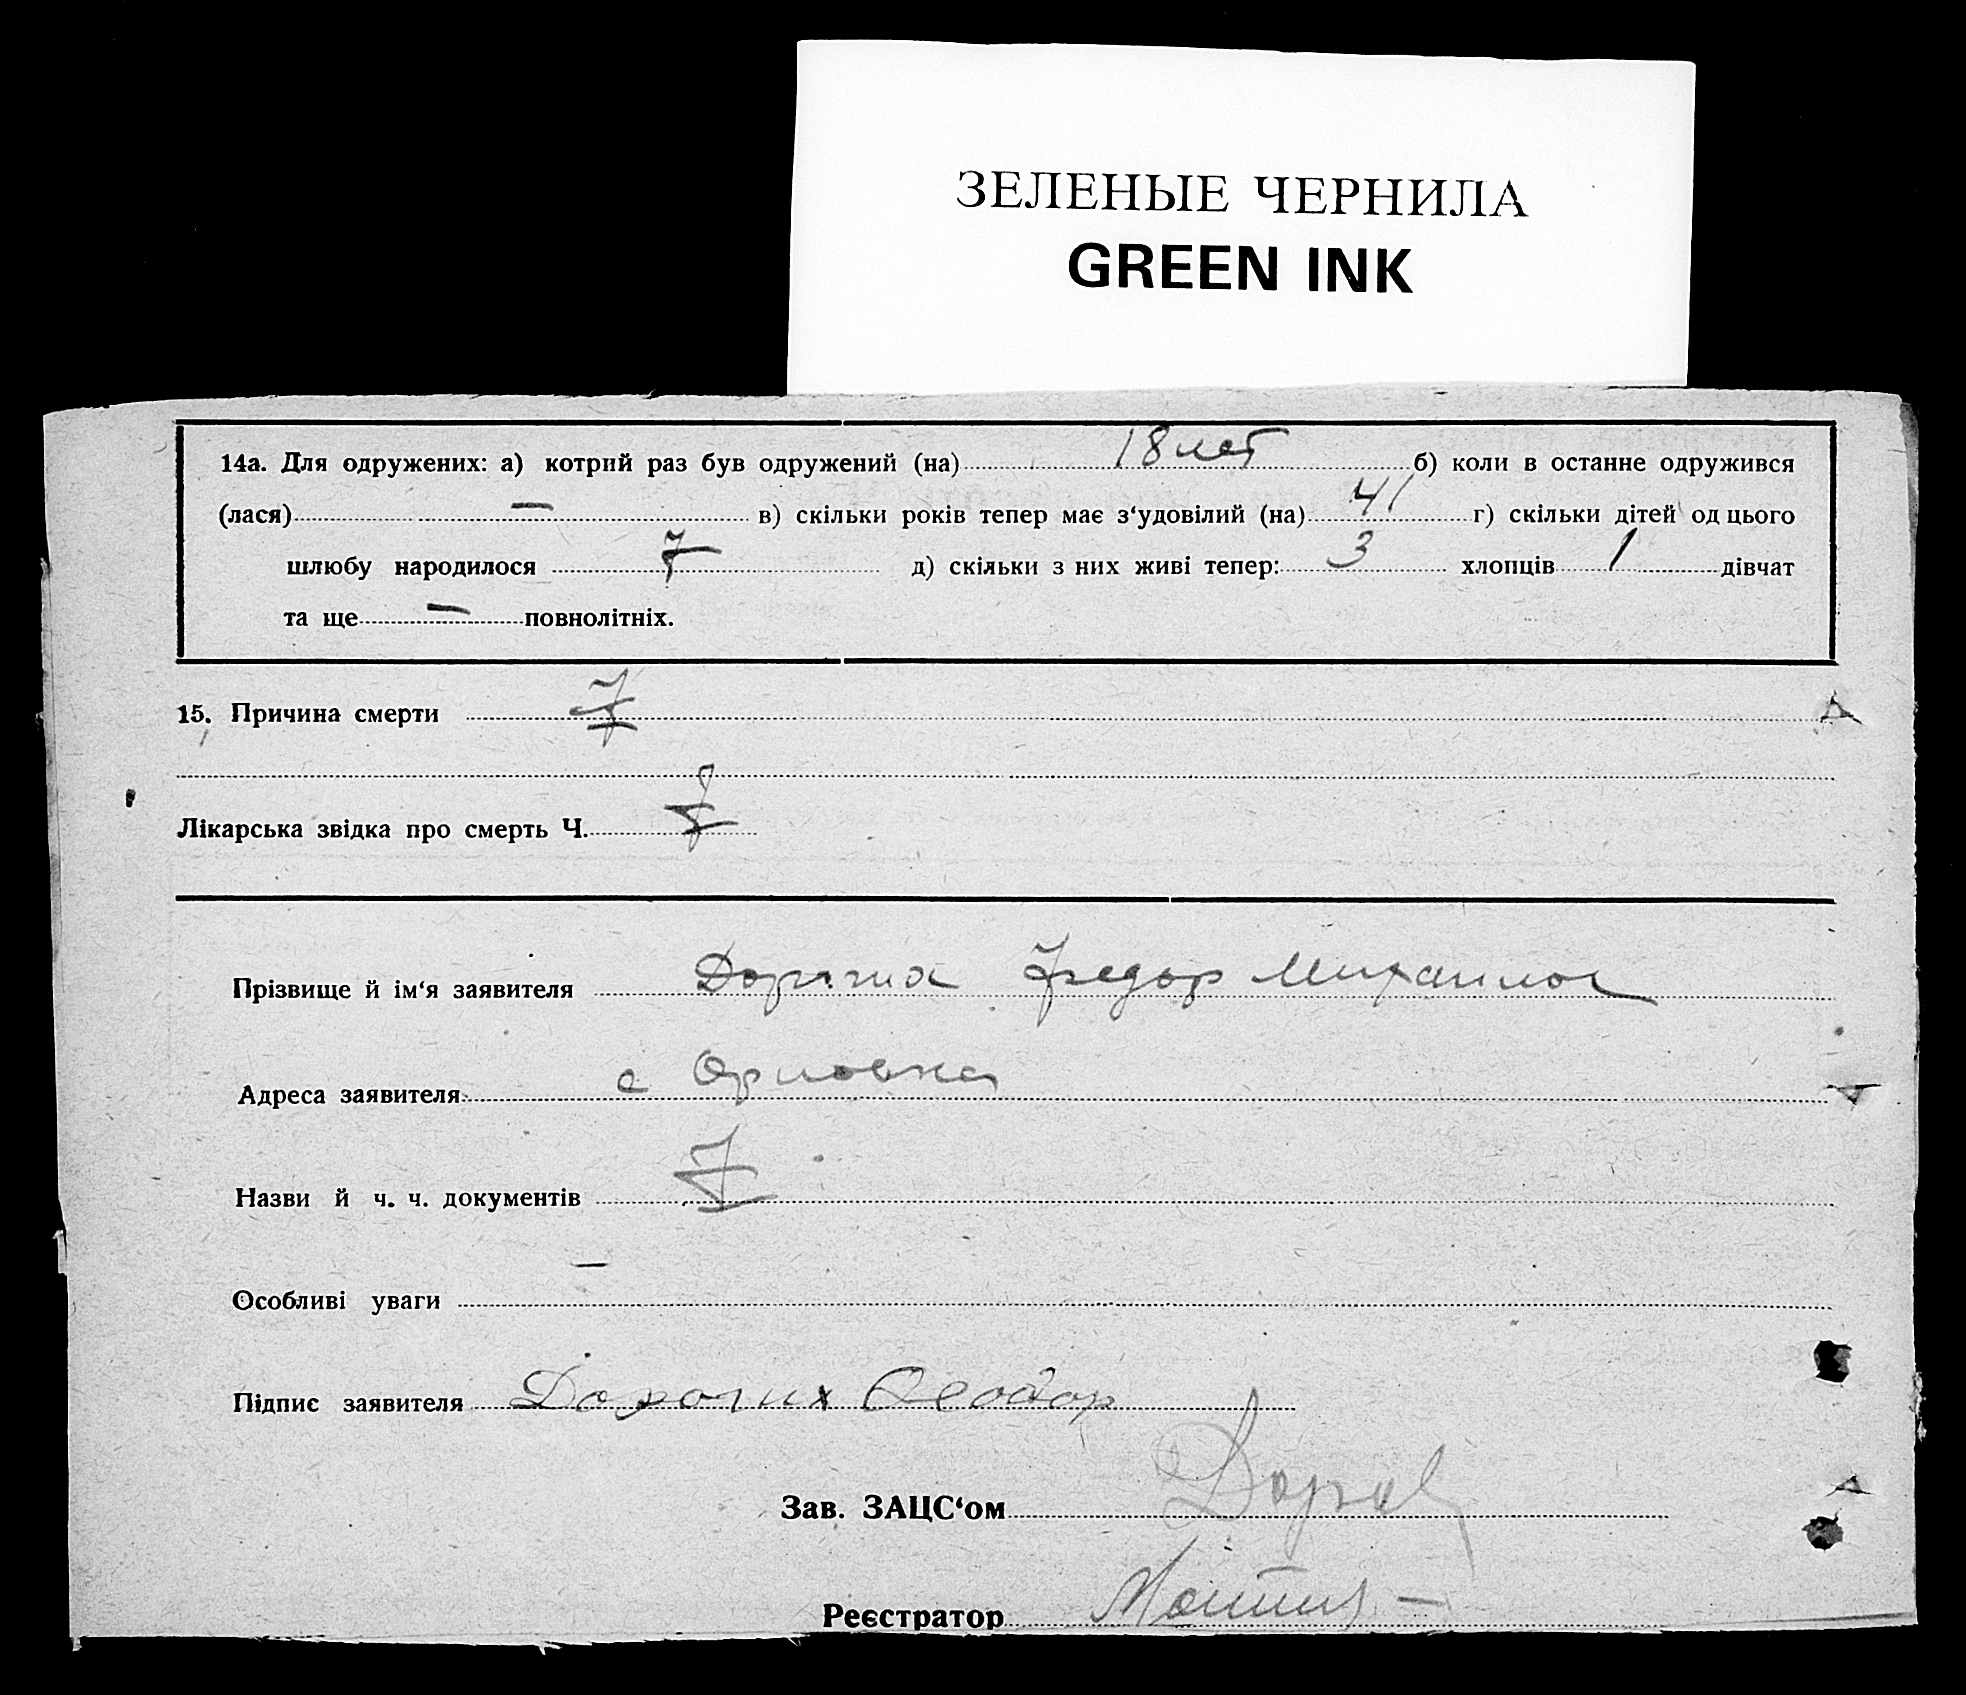 ЗЕЛЕНЫЕ ЧЕРНИЛА
GREEN INK
14а. Для одружених: а) котрий раз був одружений (на) 18 лет б) коли в останне одружився
(лася) — в) скільки років тепер має з‘удовілий (на) 41 г) скільки дітей од цього
шлюбу народилося 7 д) скільки з них живі тепер: 3 хлопців 1 дівчат
та ще — повнолітніх.
15. Причина смерти
Лікарська звідка про смерть Ч.
Прізвище й ім‘я заявителя Федор Михаилов
Адреса заявителя с Орловка
Назви й ч. ч. документів
Особливі уваги —
Підпис заявителя Феодор
Зав. ЗАЦС‘ом
Реєстратор